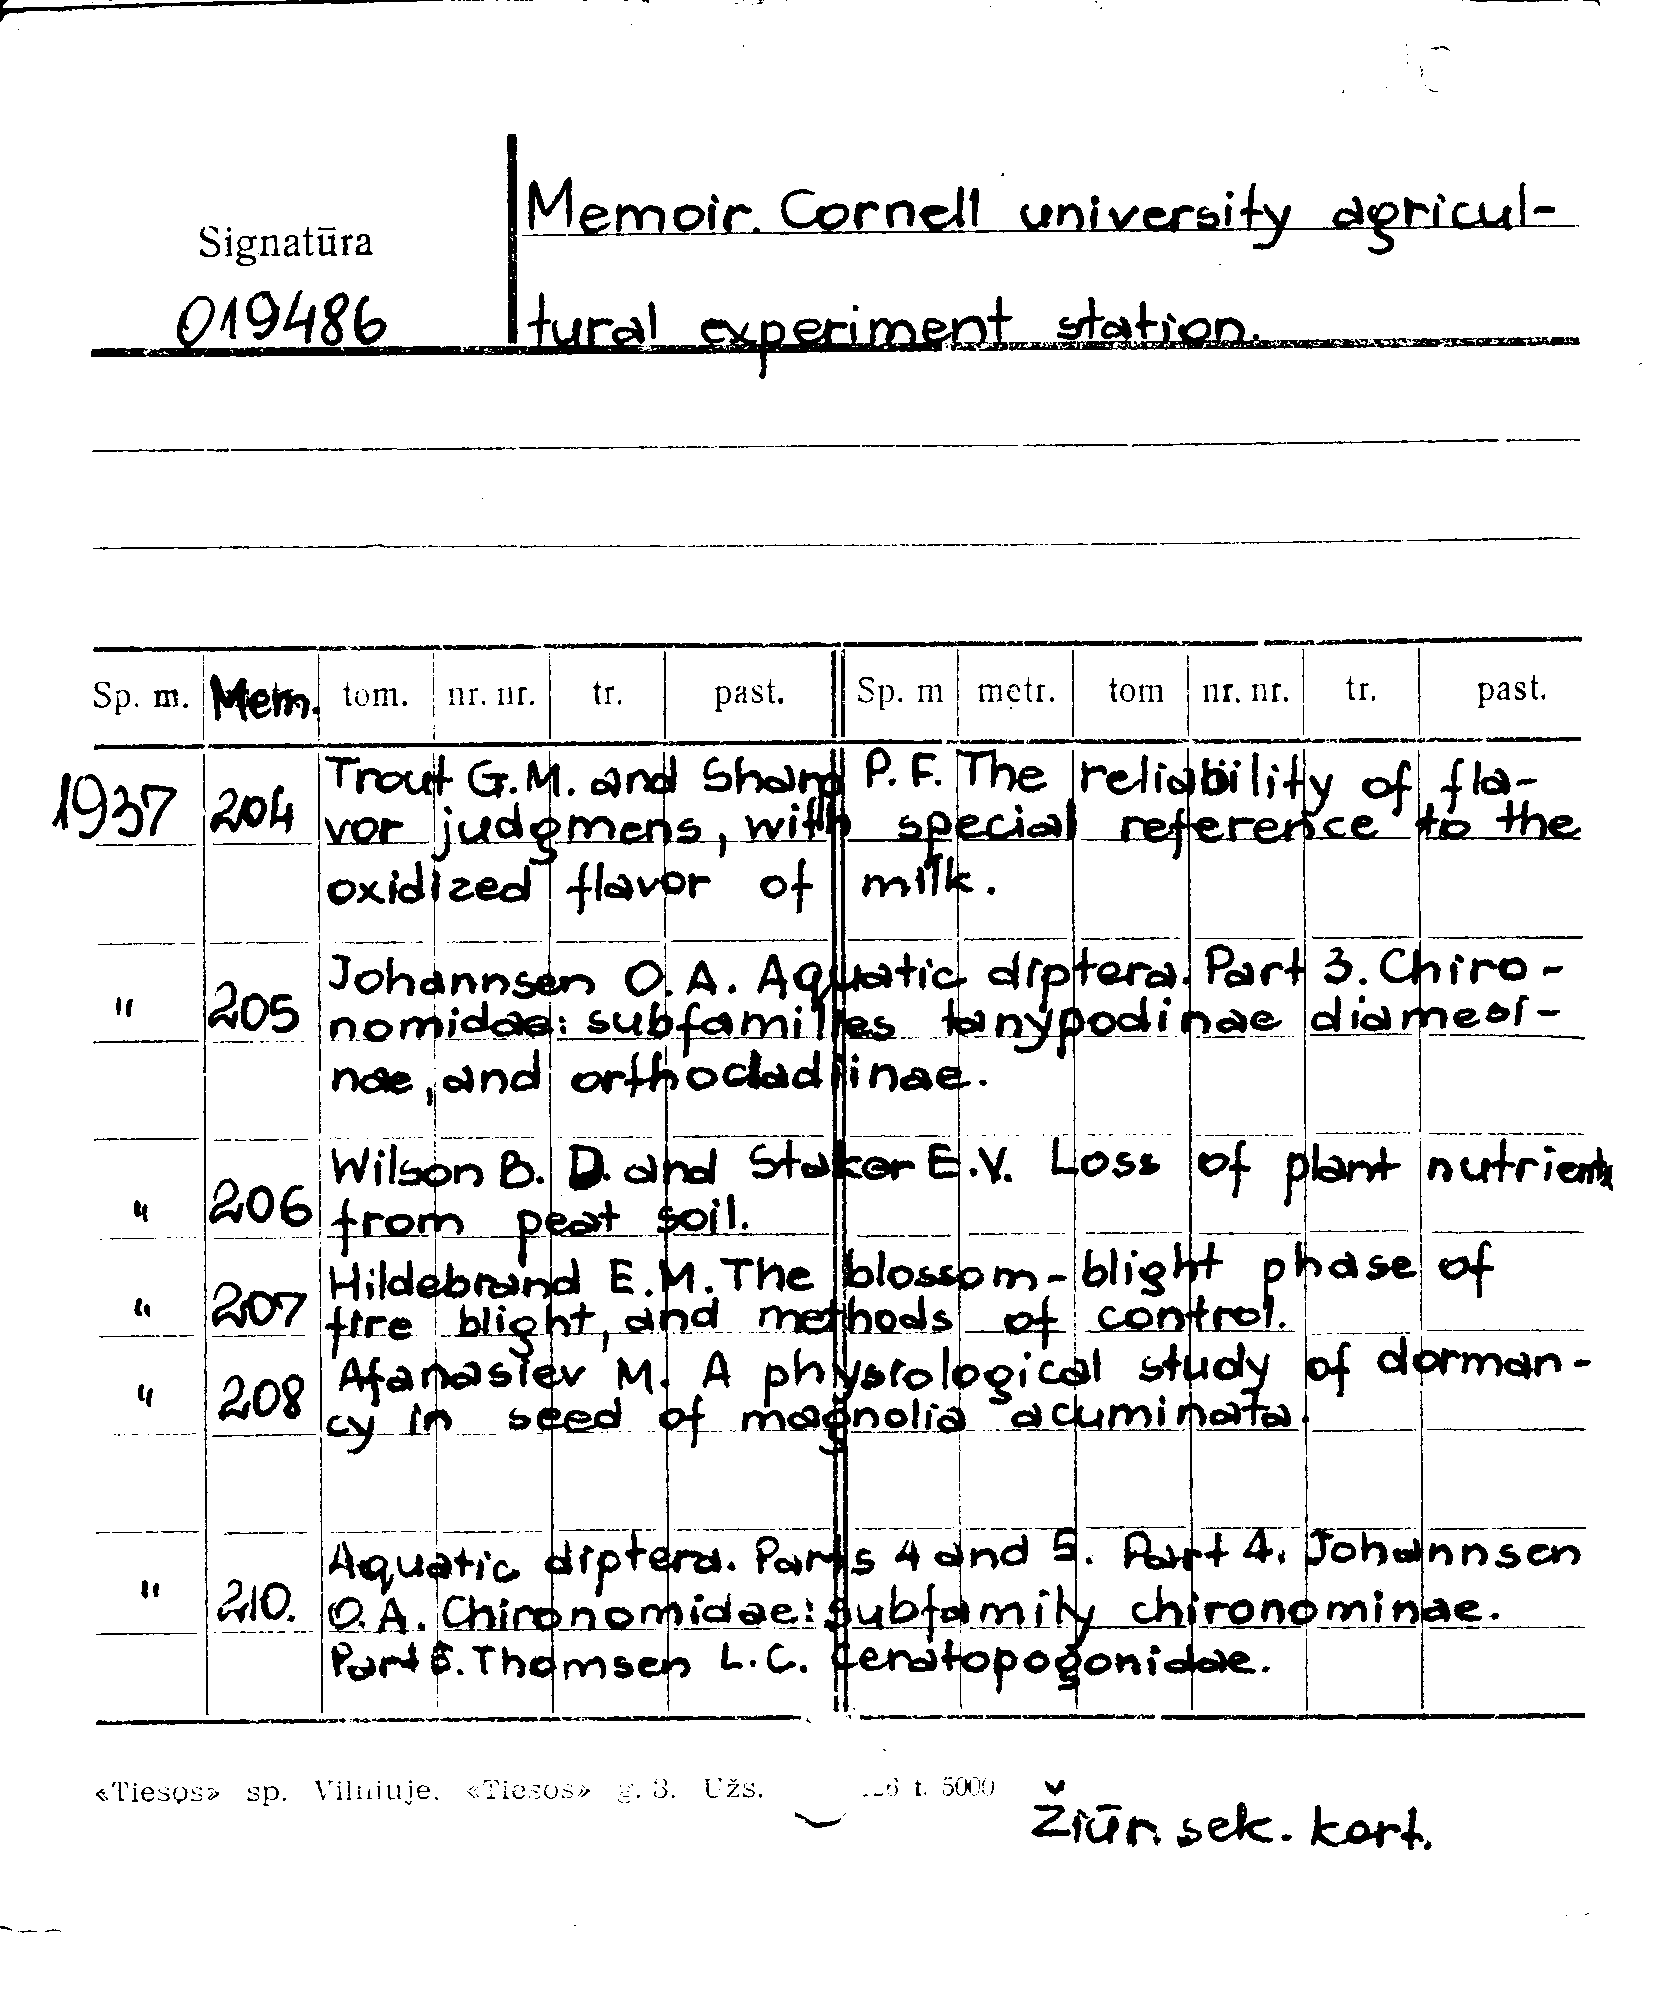 Memoir. Cornell university agricul-
Signatūra
019486
tural experiment station.
Sp. m. Mem. tom. nr. nr. tr. past. Sp. m metr. tom nr. nr. tr. past.
1937 204 Trout G.M. and Sharp P. F. The reliability of fla-
vor judgmens, with special reference to the
oxidized flavor of milk.
" 205 Johannsen O. A. Aquatic diptera. Part 3. Chiro-
nomidae: subfamilies tanypodinae diamesi-
nae, and orthocladiinae.
" 206 Wilson B. D. and Staker E.V. Loss of plant nutrients
from peat soil.
" 207 Hildebrand E.M. The blossom-blight phase of
fire blight, and methods of control.
" 208 Afanasiev M. A physiological study of dorman-
cy in seed of magnolia acuminata.
" 210. Aquatic diptera. Parts 4 and 5. Part 4. Johannsen
O. A. Chironomidae: subfamily chironominae.
Part 5. Thomsen L. C. Ceratopogonidae.
«Tiesos» sp. Vilniuje. «Tiesos» g. 3. Užs. t. 5000
Žiūr. sek. kort.